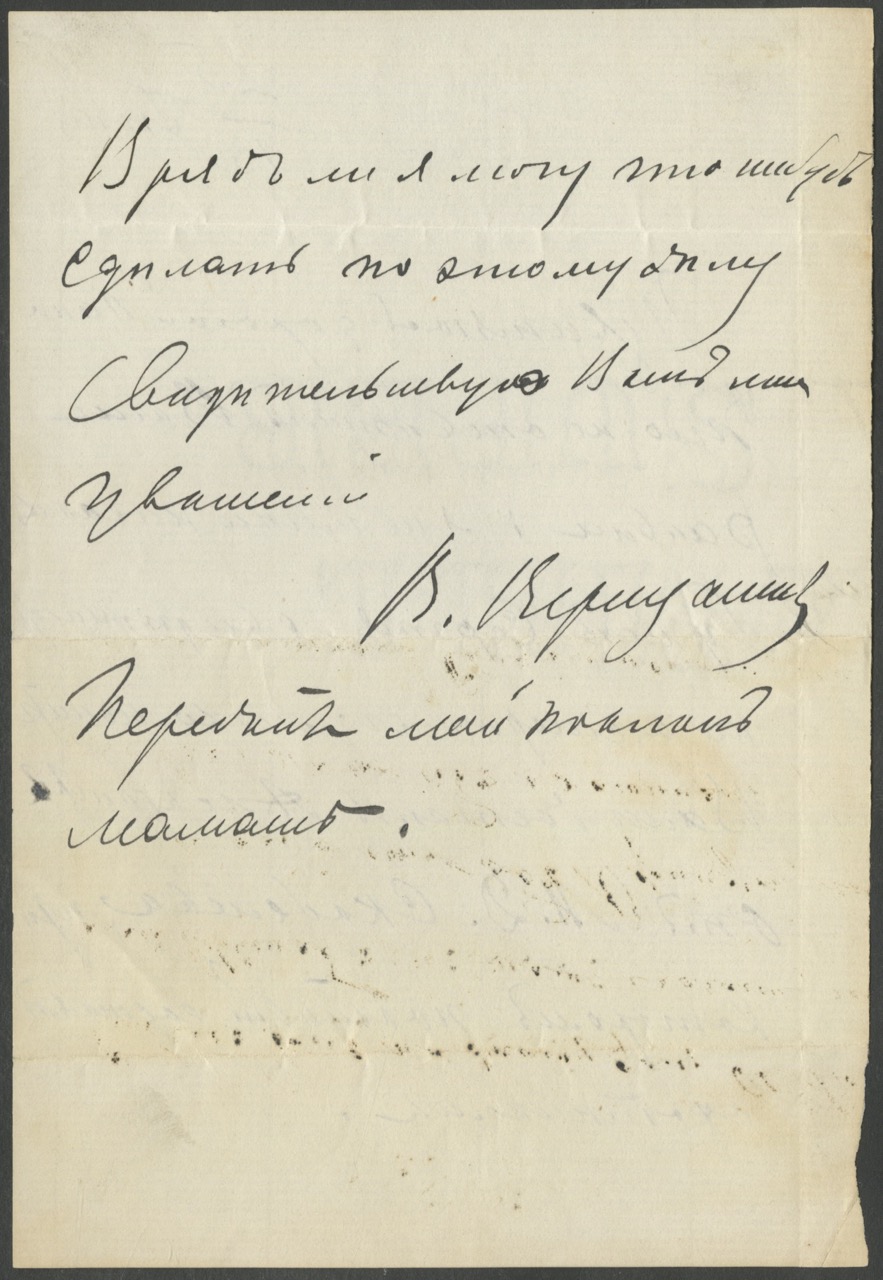 Врядъ ли я могу что нибудь
сдѣлать по этому дѣлу
Свидѣтельствую Вамъ мое
уваженiй
В. Верещагинъ
Передайте мой поклонъ
мамашѣ.